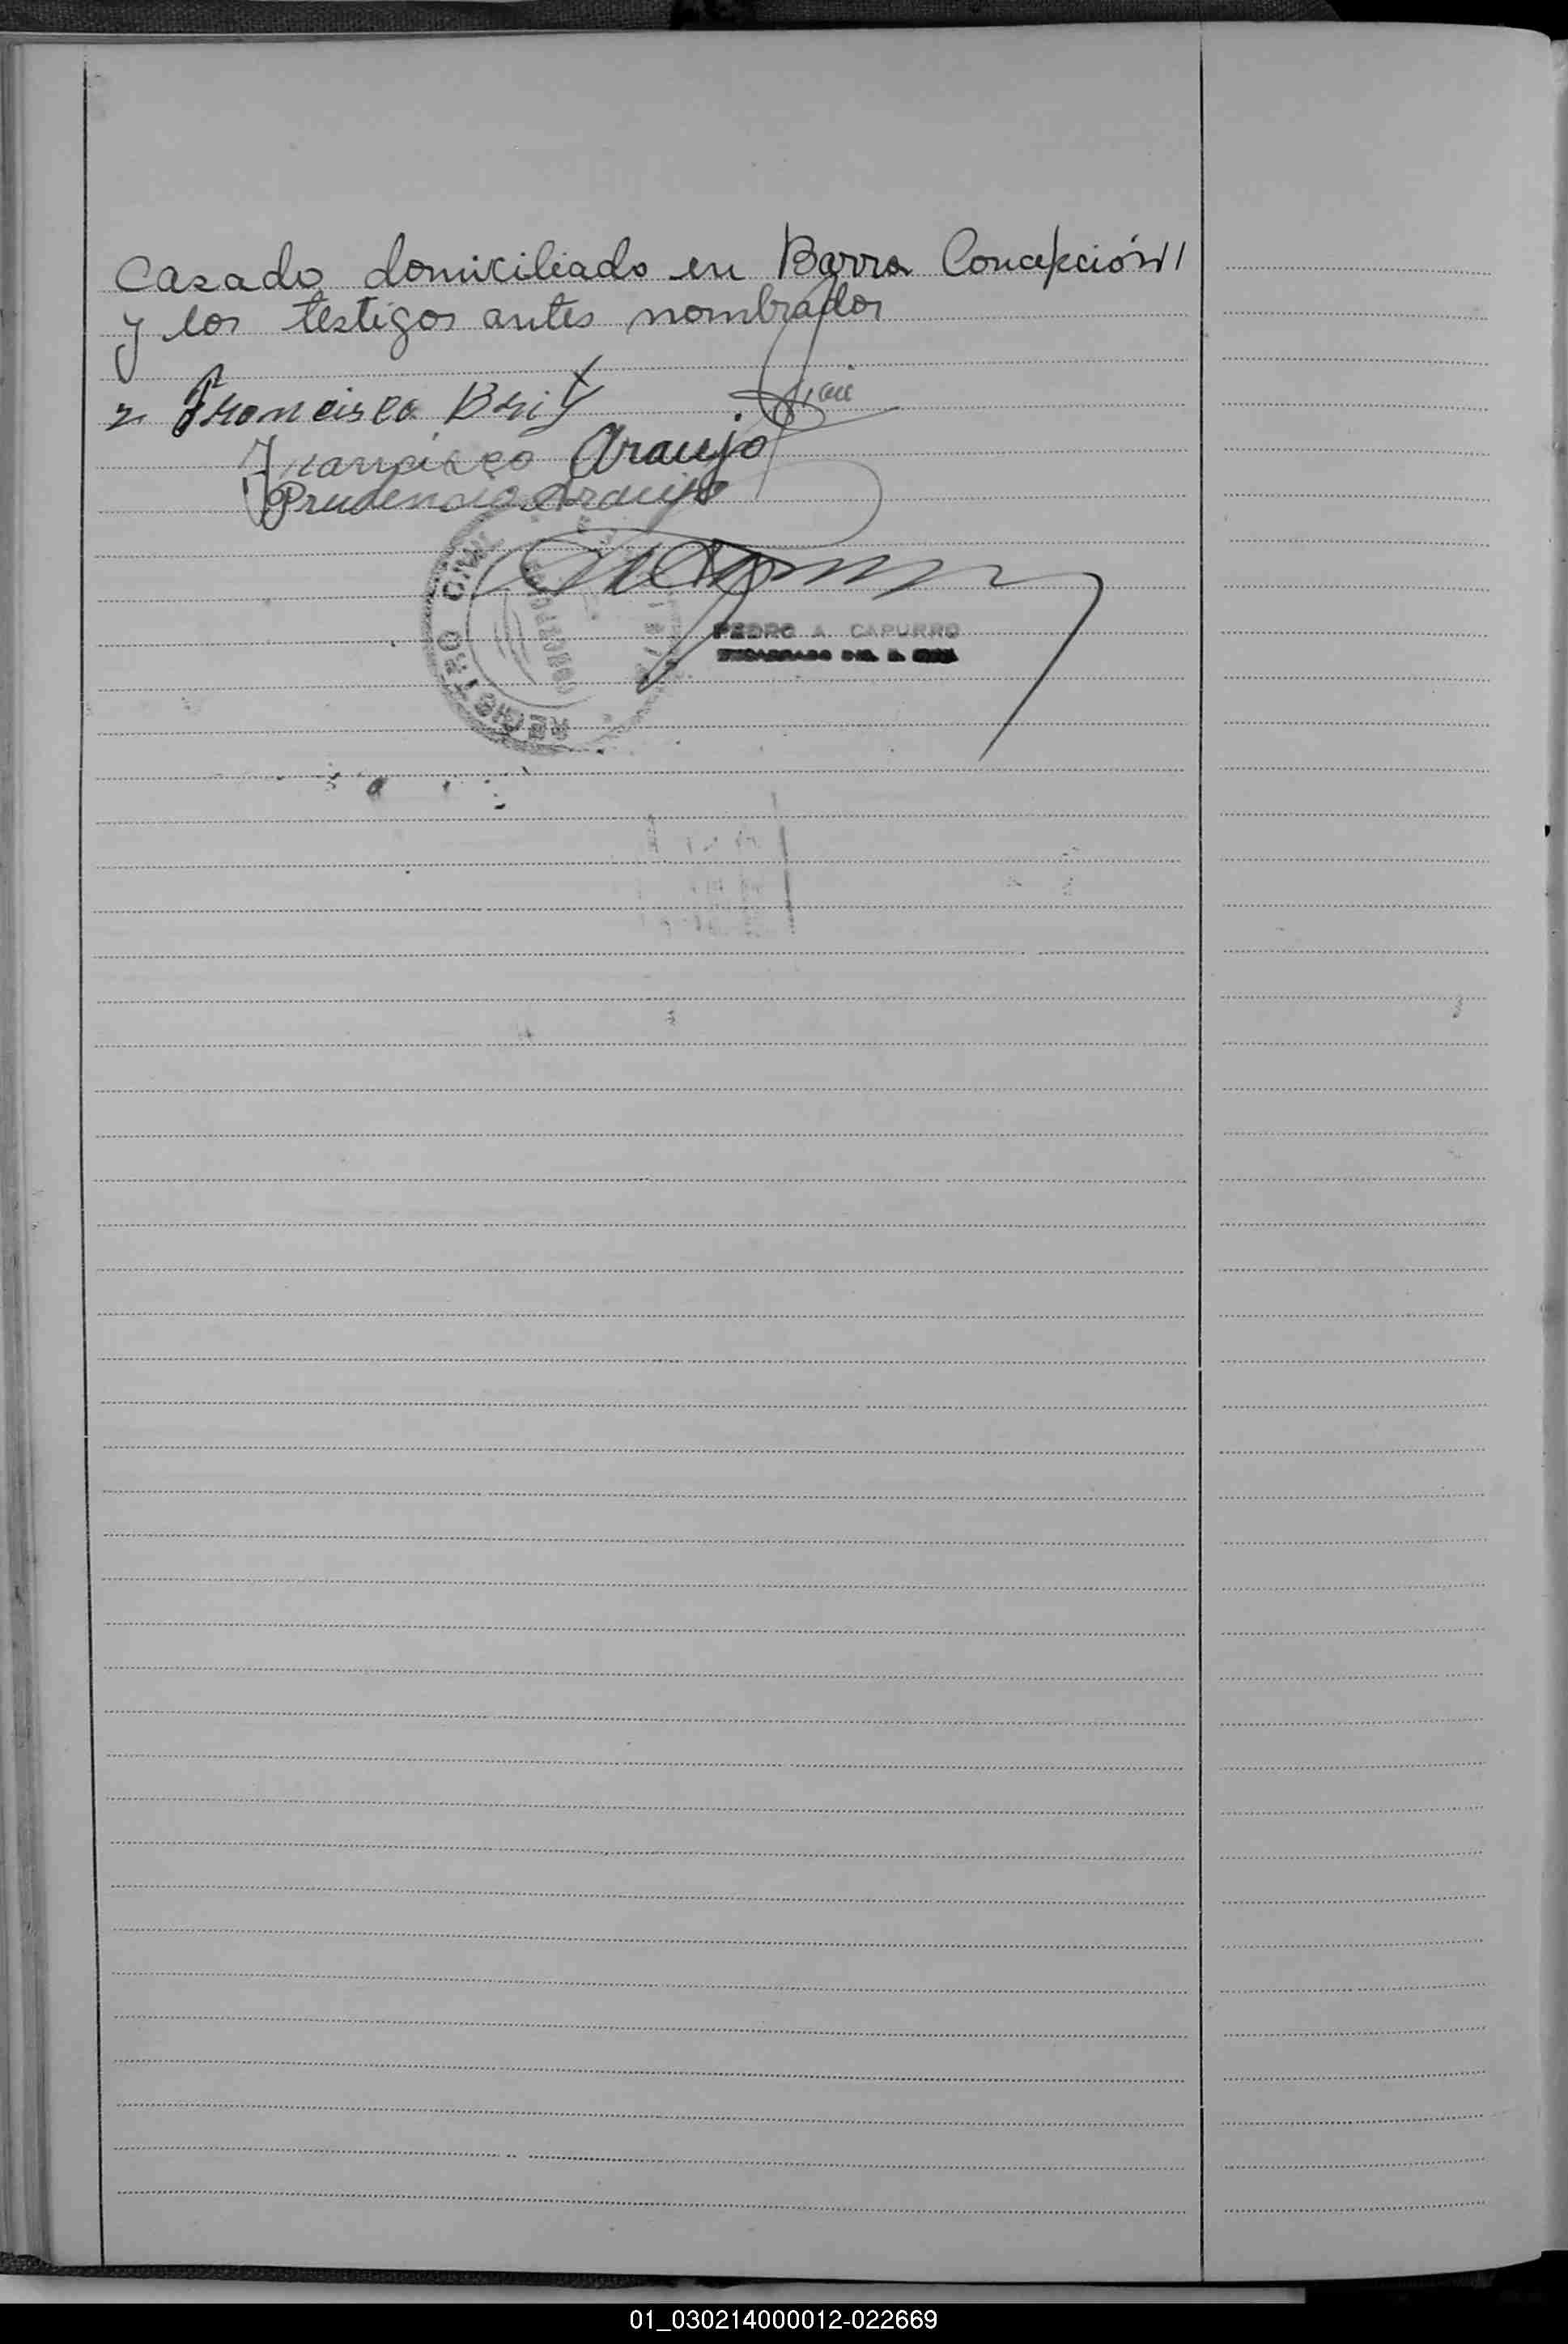 Casado domiciliado en Barra Concepción //
y los testigos antes nombrados
Francisco Brit
Francisco Araujo
Prudencio Araujo
REGISTRO CIVIL
PEDRO A. CAPURRO
ENCARGADO DEL R. CIVIL
01_030214000012-022669